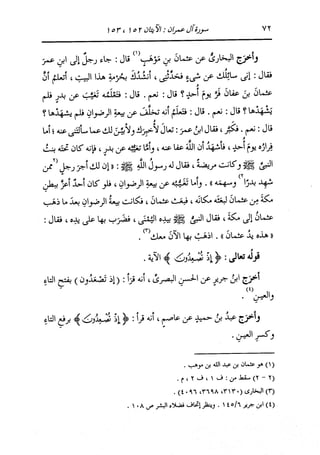 ٧٢ سورة آل عمران : الآيتان ١٥٢ ، ١٥٣
وأخرج البخارىُّ عن عثمانَ بنِ مَوْهَبٍ(١) قال : جاء رجلٌ إلى ابنِ عمرَ
فقال : إنى سائلُك عن شىءٍ فحدِّثْنى ، أنشُدُك بحُرمةِ هذا البيتِ ، أتعلمُ أنَّ
عثمانَ بنَ عفانَ فرَّ يومَ أُحدٍ ؟ قال : نعم . قال : فتَعْلَمُه تَغَيَّب عن بدرٍ فلم
يَشْهَدْها ؟ قال : نعم . قال : فتَعْلَمُ أنه تخلَّف عن بيعةِ الرضوانِ فلم يشهَدْها ؟
قال : نعم . فكبَّر ، فقال ابنُ عمرَ : تعالَ لأُخبِرَك ولأُبيِّنَ لك عما سألتَنى عنه ؛ أما
فِرارُه يومَ أُحدٍ ، فأشهَدُ أن اللَّهَ عفا عنه ، وأمّا تغيُّبُه عن بدرٍ ، فإنه كان تحتَه بنتُ
النبىِّ ﷺ وكانت مريضةً ، فقال له رسولُ اللَّهِ ﷺ : « إن لك أجرَ رجلٍ (٢ممن
شهِد بدرًا٢) وسهمَه » . وأما تَغَيُّبُه عن بيعةِ الرضوانِ ، فلو كان أحدٌ أعزَّ ببطنِ
مكةَ من عثمانَ لبعَثه مكانَه ، فبعَث عثمانَ ، فكانت بيعةُ الرضوانِ بعدَ ما ذهَب
عثمانُ إلى مكةَ ، فقال النبىُّ ﷺ بيدِه اليُمْنى ، فضرَب بها على يدِه ، فقال :
« هذه يدُ عثمانَ » . اذهَبْ بها الآنَ معك(٣) .
قولُه تعالى : ﴿ إِذْ تُصْعِدُونَ ﴾ الآية .
أخرَج ابنُ جريرٍ عن الحسنِ البصرىِّ ، أنه قرَأ : (إذ تَصْعَدُون ) بفتحِ التاءِ
والعينِ(٤) .
وأخرَج عبدُ بنُ حميدٍ عن عاصمٍ ، أنه قرَأ : ﴿ إِذْ تُصْعِدُونَ ﴾ برفعِ التاءِ
وكسرِ العينِ .
(١) هو عثمان بن عبد الله بن موهب .
(٢ - ٢) سقط من : ف ١ ، ف ٢ ، م .
(٣) البخارى (٣١٣٠، ٣٦٩٨، ٤٠٩٦) .
(٤) ابن جرير ٦/ ١٤٥ . وينظر إتحاف فضلاء البشر ص ١٠٨ .